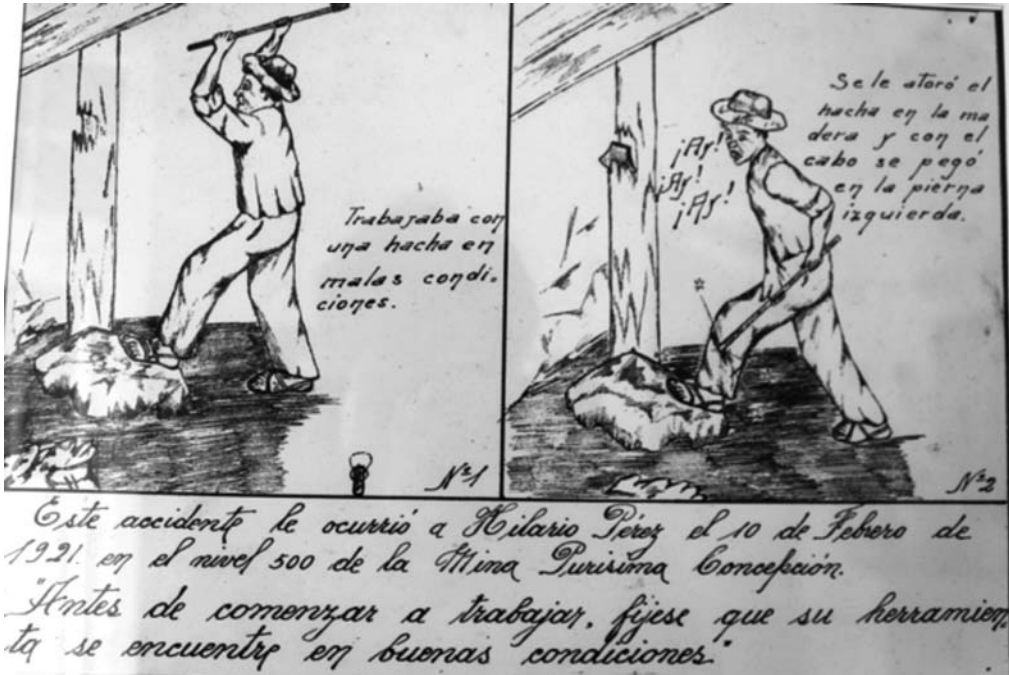 Trabajaba con
una hacha en
malas condi-
ciones.
Nº1
¡Ay!
¡Ay!
¡Ay!
Se le atoró el
hacha en la ma
dera y con el
cabo se pegó
en la pierna
izquierda.
Nº2
Este accidente le ocurrió a Hilario Pérez el 10 de Febrero de
1921. en el nivel 500 de la Mina Purisima Concepción.
"Antes de comenzar a trabajar, fijese que su herramien
ta se encuentre en buenas condiciones."